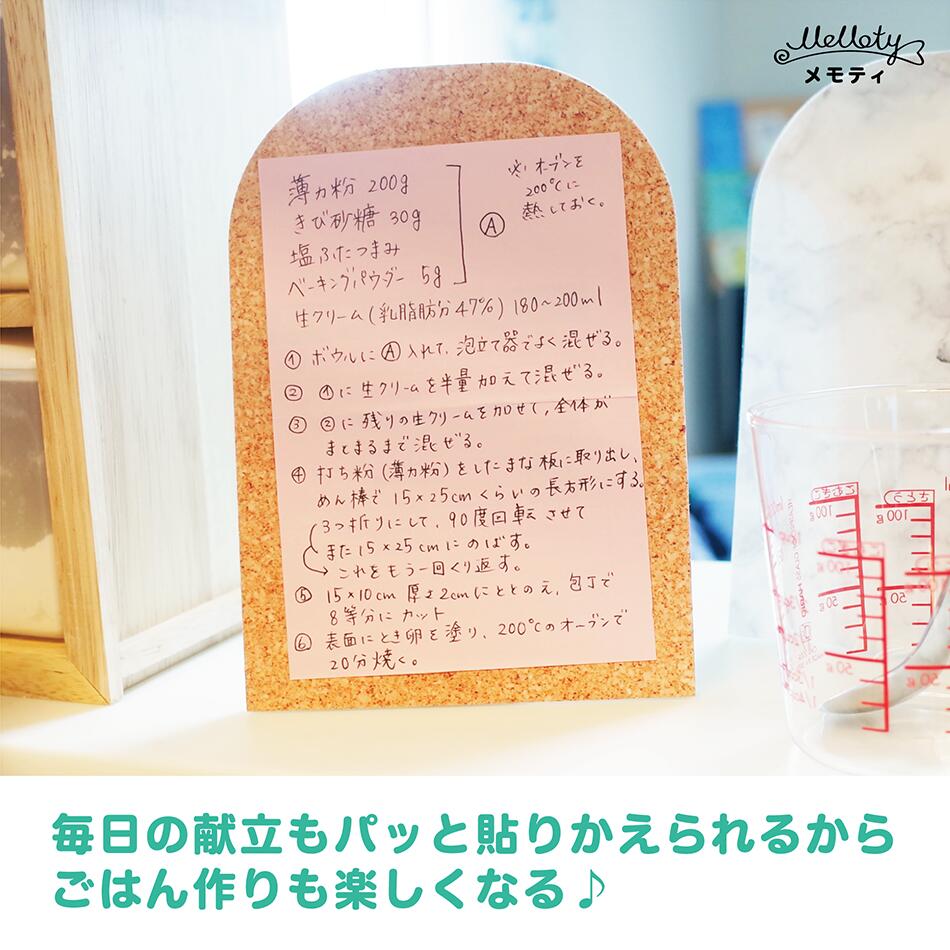 MeMoty
メモティ
薄力粉 200g
きび砂糖 30g
塩ふたつまみ
ベーキングパウダー 5g
Ⓐ
※オーブンを
200℃に
熱しておく。
生クリーム(乳脂肪分47%) 180~200ml
① ボウルにⒶ入れて、泡立て器でよく混ぜる。
② ①に生クリームを半量加えて混ぜる。
③ ②に残りの生クリームを加せて、全体が
まとまるまで混ぜる。
④ 打ち粉(薄力粉)をしたまな板に取り出し、
めん棒で 15×25cmくらいの長方形にする。
3つ折りにして、90度回転させて
また15×25cmにのばす。
これをもう一回くり返す。
⑤ 15×10cm 厚さ2cmにととのえ、包丁で
8等分にカット
⑥ 表面にとき卵を塗り、200℃のオーブンで
20分焼く。
こむぎこ
さとう
100g
100g
100g
50g
50g
50g
毎日の献立もパッと貼りかえられるから
ごはん作りも楽しくなる♪